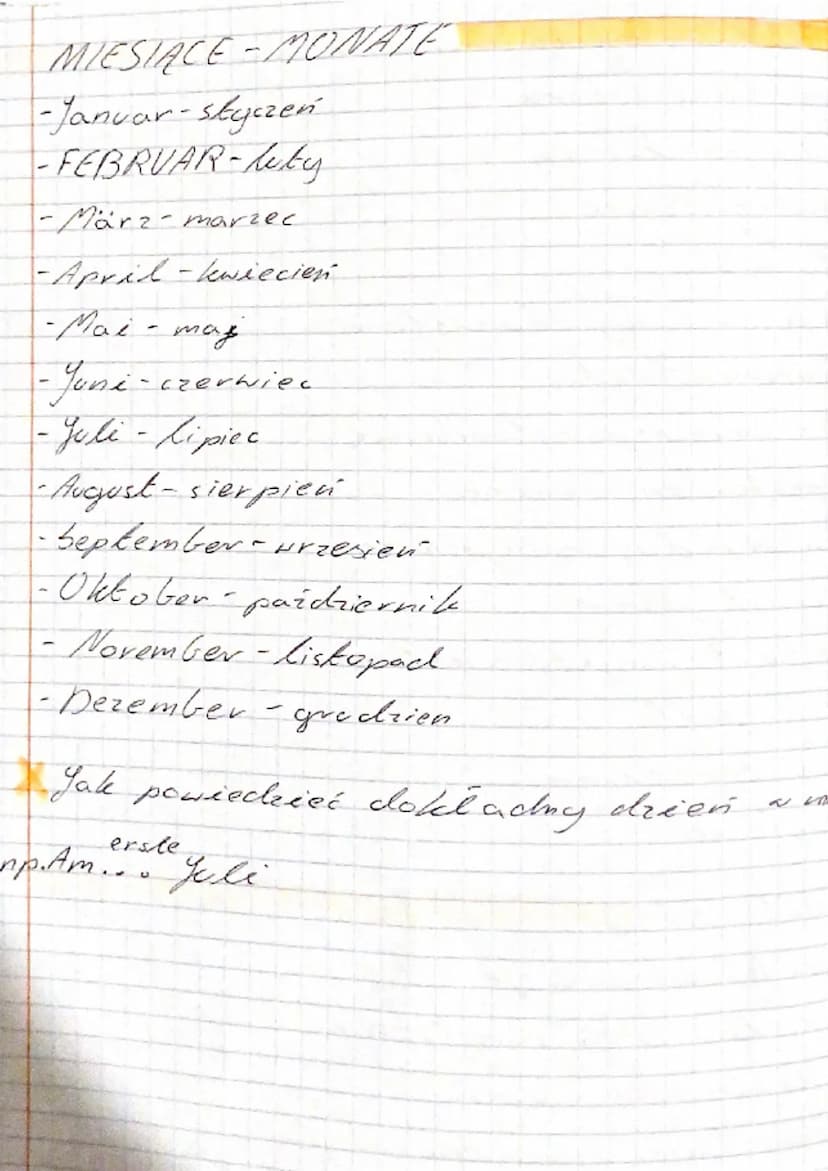 MIESIĄCE - MONATE
- Januar - styczeń
- FEBRUAR - luty
- März - marzec
- April - kwiecień
- Mai - maj
- Juni - czerwiec
- Juli - lipiec
- August - sierpień
- September - wrzesień
- Oktober - październik
- November - listopad
- Dezember - grudzien
x Jak powiedzieć dokładny dzień w
erste
np. Am ... Juli